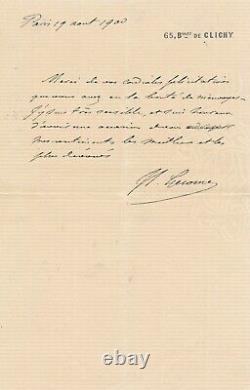 Paris 19 aout 1900
65, Bould DE CLICHY
Merci de vos cordiales félicitations
que vous avez eu la bonté de
j'y suis très sensible, et suis heureux
d'avoir une occasion de vous
mes sentiments les meilleurs et les
plus dévoués